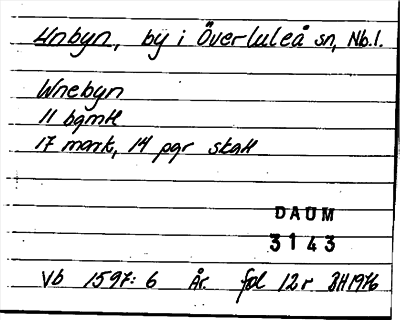 Unbyn, by i Överluleå sn, Nb.l.
Wnebyn
11 bgmtl
17 mark, 14 pgr skatt
DAUM
3143
Vb 1597:6 År fol 12r BH1976